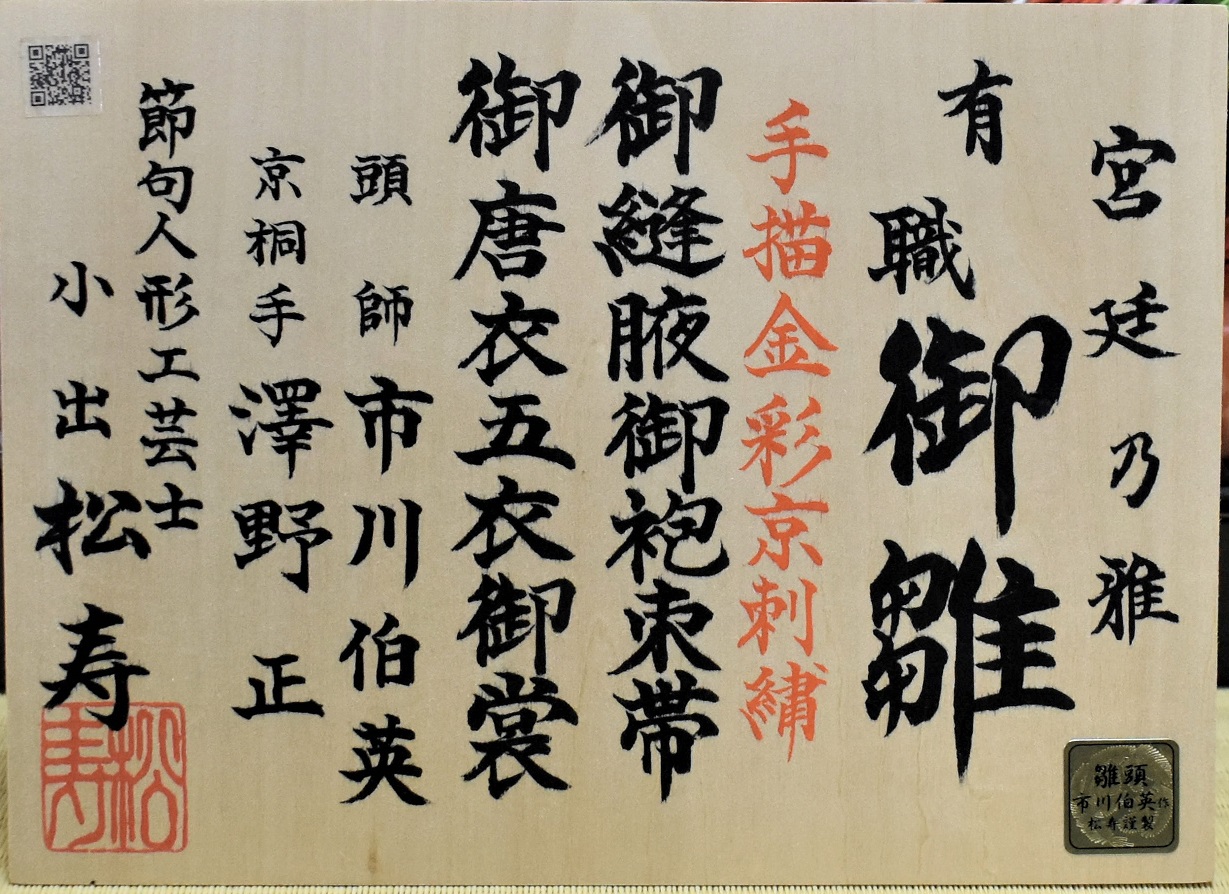 宮廷乃雅
有職御雛
手描金彩京刺繍
御縫腋御袍束帯
御唐衣五衣御裳
頭師 市川伯英
京桐手 澤野正
節句人形工芸士
小出松寿
松寿
雛頭
市川伯英作
松寿謹製